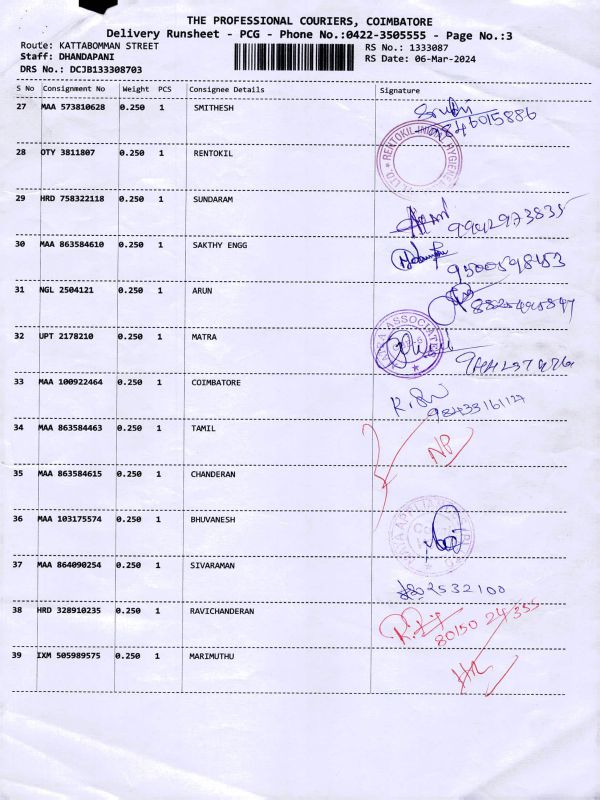 THE PROFESSIONAL COURIERS, COIMBATORE
Delivery Runsheet - PCG - Phone No.:0422-3505555 - Page No.:3
Route: KATTABOMMAN STREET
RS No.: 1333087
Staff: DHANDAPANI
RS Date: 06-Mar-2024
DRS No.: DCJB133308703
S No Consignment No Weight PCS Consignee Details Signature
27 MAA 573810628 0.250 1 SMITHESH
28 OTY 3811807 0.250 1 RENTOKIL
RENTOKIL INITIAL HYGIENE LTD.
29 HRD 758322118 0.250 1 SUNDARAM 9942973835
30 MAA 863584610 0.250 1 SAKTHY ENGG 9500598453
31 NGL 2504121 0.250 1 ARUN
32 UPT 2178210 0.250 1 MATRA
ASSOCIATES
33 MAA 100922464 0.250 1 COIMBATORE
34 MAA 863584463 0.250 1 TAMIL NP
35 MAA 863584615 0.250 1 CHANDERAN
36 MAA 103175574 0.250 1 BHUVANESH
37 MAA 864090254 0.250 1 SIVARAMAN 2532100
38 HRD 328910235 0.250 1 RAVICHANDERAN 80150 24355
39 IXM 505989575 0.250 1 MARIMUTHU